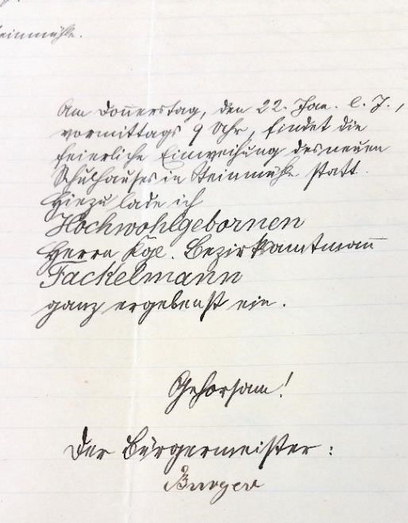 Steinmühle.
Am Donnerstag, den 22. Jan. l. J.,
vormittags 9 Uhr, findet die
feierliche Einweihung des neuen
Schulhauses in Steinmühle statt.
Hiezu lade ich
Hochwohlgebornen
Herrn Kgl. Bezirksamtmann
Fackelmann
ganz ergebenst ein.
Gehorsam!
Der Bürgermeister:
Burger